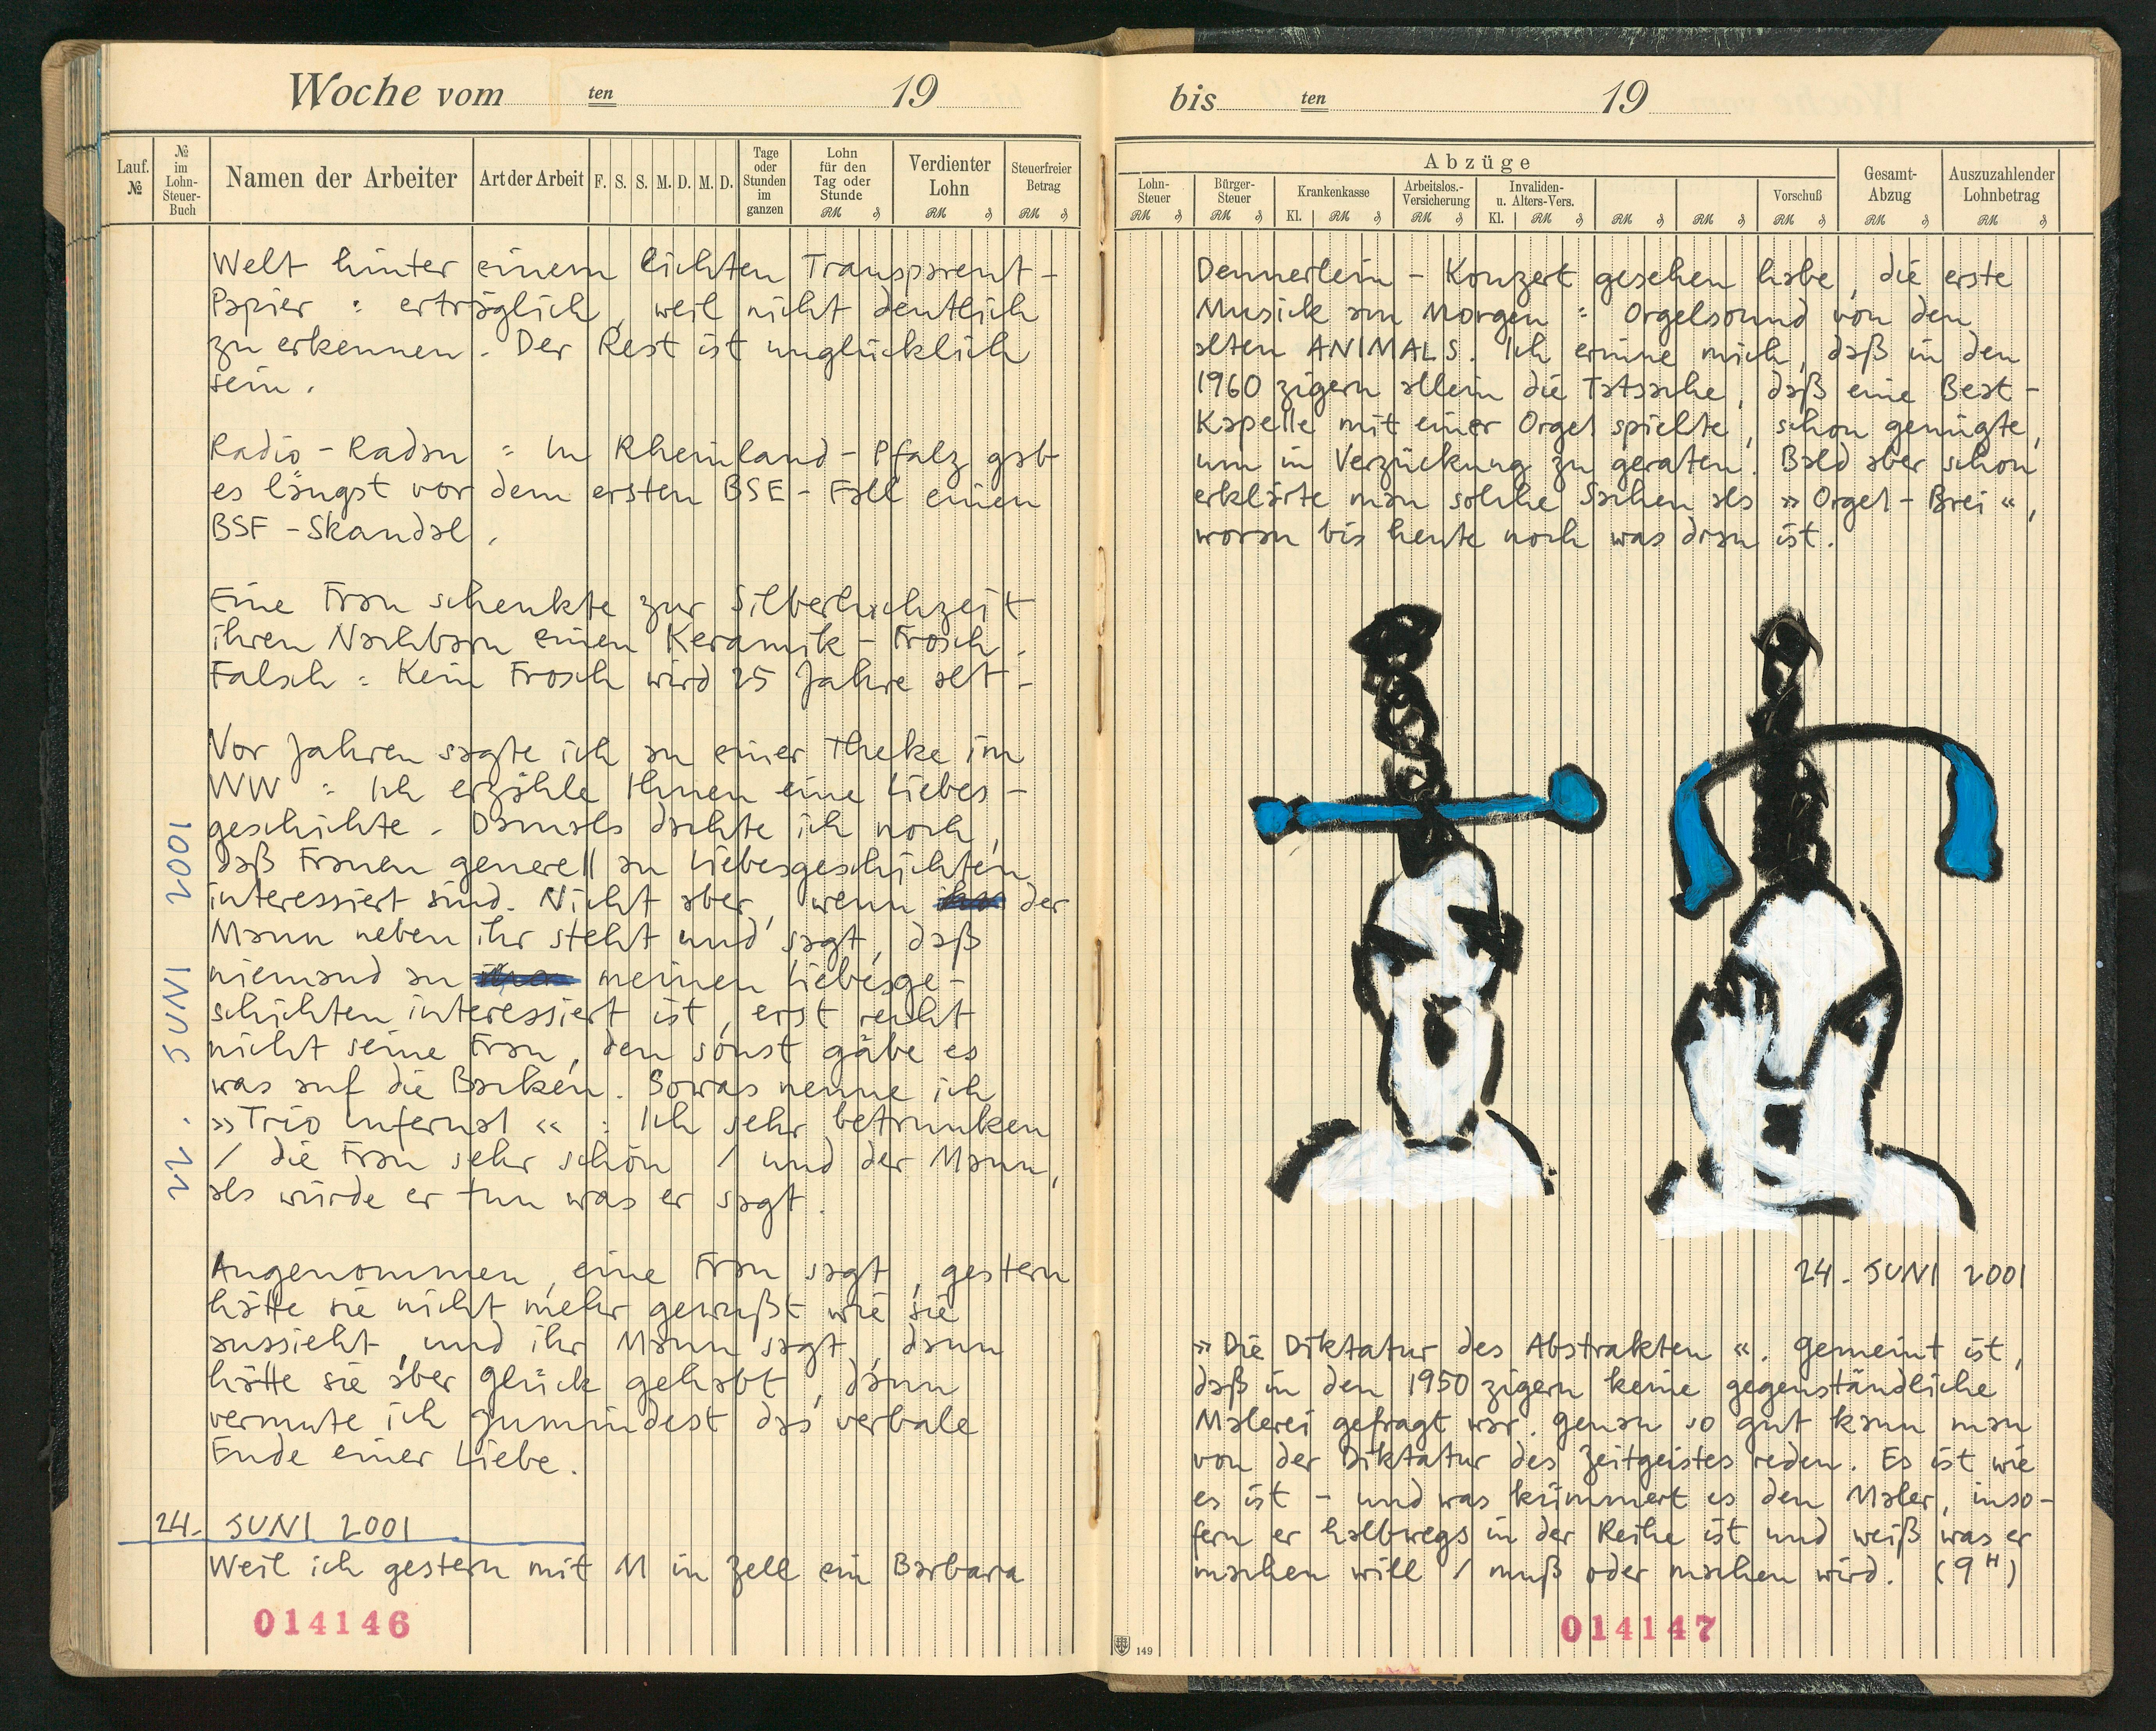 Woche vom ten 19
Lauf. №
№ im Lohn-Steuer-Buch
Namen der Arbeiter
Art der Arbeit
F. S. S. M. D. M. D.
Tage oder Stunden im ganzen
Lohn für den Tag oder Stunde
RM ₰
Verdienter Lohn
RM ₰
Steuerfreier Betrag
RM ₰
Welt hinter einem lichten Transparent-
Papier : erträglich, weil nicht deutlich
zu erkennen. Der Rest ist unglücklich
sein.
Radio-Radau : In Rheinland-Pfalz gab
es längst vor dem ersten BSE-Fall einen
BSF-Skandal.
Eine Frau schenkte zur Silberhochzeit
ihren Nachbarn einen Keramik-Frosch.
Falsch : Kein Frosch wird 25 Jahre alt -
Vor Jahren sagte ich an einer Theke im
WW : Ich erzähle Ihnen eine Liebes-
geschichte. Damals dachte ich noch,
daß Frauen generell an Liebesgeschichten
interessiert sind. Nicht aber, wenn der
Mann neben ihr steht und sagt, daß
niemand an meinen Liebesge-
schichten interessiert ist, erst recht
nicht seine Frau, den sonst gäbe es
was auf die Backen. Sowas nenne ich
»Trio Infernal« : Ich sehr betrunken
/ die Frau sehr schön / und der Mann,
als würde er tun was er sagt.
Angenommen, eine Frau sagt, gestern
hätte sie nicht mehr gewußt wie sie
aussieht, und ihr Mann sagt, dann
hätte sie aber Glück gehabt, dann
vermute ich zumindest das verbale
Ende einer Liebe.
22. JUNI 2001
24. JUNI 2001
Weil ich gestern mit M in Zell ein Barbara
014146
bis ten 19
Abzüge
Lohn-Steuer
RM ₰
Bürger-Steuer
RM ₰
Krankenkasse
Kl. RM ₰
Arbeitslos.-Versicherung
RM ₰
Invaliden- u. Alters-Vers.
Kl. RM ₰
RM ₰
RM ₰
Vorschuß
RM ₰
Gesamt-Abzug
RM ₰
Auszuzahlender Lohnbetrag
RM ₰
Dennerlein-Konzert gesehen habe, die erste
Musick am Morgen : Orgelsound von den
alten ANIMALS. Ich erinne mich, daß in den
1960 zigern allein die Tatsache, daß eine Beat-
Kapelle mit einer Orgel spielte, schon genügte,
um in Verzückung zu geraten. Bald aber schon
erklärte man solche Sachen als »Orgel-Brei«,
woran bis heute noch was dran ist.
24. JUNI 2001
»Die Diktatur des Abstrakten«. Gemeint ist,
daß in den 1950 zigern keine gegenständliche
Malerei gefragt war. Genau so gut kann man
von der Diktatur des Zeitgeistes reden. Es ist wie
es ist - und was kümmert es den Maler, inso-
fern er halbwegs in der Reihe ist und weiß was er
machen will / muß oder machen wird. (9H)
149
014147